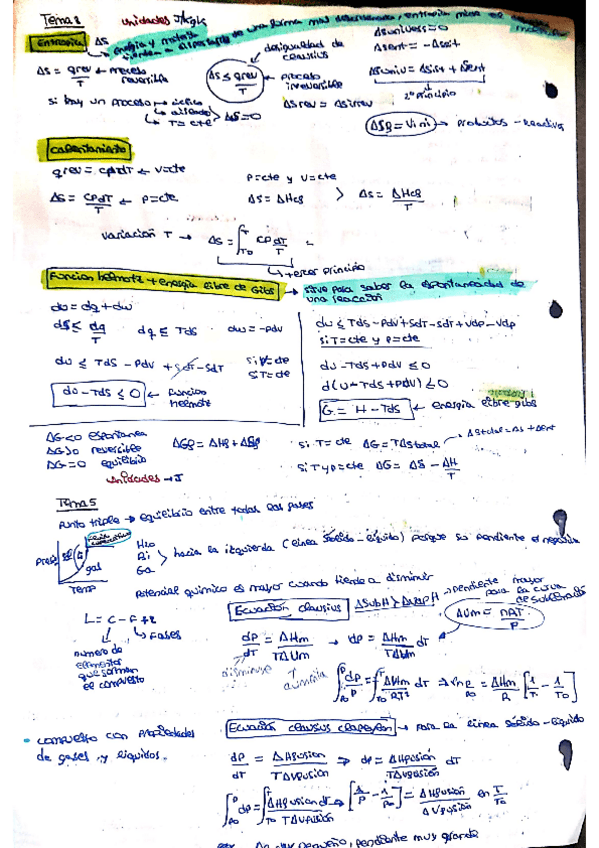 Tema 8
Unidades J/kgK
Entropia ΔS
Energia y materia tienden a dispersarse de una forma mas desordenada, entropia mide el
Δsuniverss=0
Δsent = -Δssist
desigualdad de clausius
ΔS = qrev / T ← proceso reversible
ΔS ≤ qrev / T → proceso irreversible
Δsuniv = Δsist + Δsent
2º principio
si hay un proceso → ciclico
→ aislado
→ T=cte
ΔS=0
Δs rev = Δsirrev
→ productos - reactivos
calentamiento
qrev = cpdT ← V=cte
ΔS = CpdT / T ← P=cte
P=cte y V=cte
ΔS = ΔHcg
ΔS = ΔHcg / T
variación T → ΔS = ∫ T To CP dT / T
→ tercer principio
Funcion helmotz + energia libre de Gibs → sirve para saber la espontaneidad de una reacción
du = dq + dw
dS ≤ dq / T
dq ≤ Tds
dw = -pdv
du ≤ Tds - Pdv + SdT - SdT
si V=cte
si T=cte
du - Tds ≤ 0 ← funcion helmotz
du ≤ Tds - Pdv + SdT - SdT + vdp - vdp
si T=cte y p=cte
du - Tds + Pdv ≤ 0
d(u - Tds + Pdv) ≤ 0
G = H - Tds ← energia libre gibs
ΔG<0 espontanea
ΔG>0 reversible
ΔG=0 equilibrio
unidades → J
si T=cte ΔG = TΔStotal
ΔStotal = Δs + Δsent
si T y p=cte ΔG = ΔS - ΔH / T
Tema 5
Punto triple → equilibrio entre todas las fases
Presi
sol
gas
Temp
H2O
Bi
Ga
hacia la izquierda (linea sólido-líquido) porque su pendiente es negativa
Potencial químico es mayor cuando tiende a disminuir
L = C - F + 2
→ Fases
numero de elementos que forman el compuesto
Ecuación clausius
ΔSub H > ΔVap H → pendiente mayor para la curva de sublimación
ΔVm = nRT / P
dP / dT = ΔHm / TΔVm → dP = ΔHm / TΔVm dT
disminuye
aumenta
∫ P Po dP / P = ∫ T To ΔHm / RT² dT ⇒ ln P / Po = ΔHm / R [1/T - 1/To]
• compuesto con propiedades de gases y líquidos.
Ecuación clausius clapeyron → para la linea sólido-líquido
dP / dT = ΔHfusion / TΔVfusión ⇒ dP = ΔHfusión / TΔVfusión dT
∫ P Po dP = ∫ T To ΔHfusion dT / TΔVfusión ⇒ [1/P - 1/Po] = ΔHfusión / ΔVfusión ln T / To
muy pequeño, pendiente muy grande